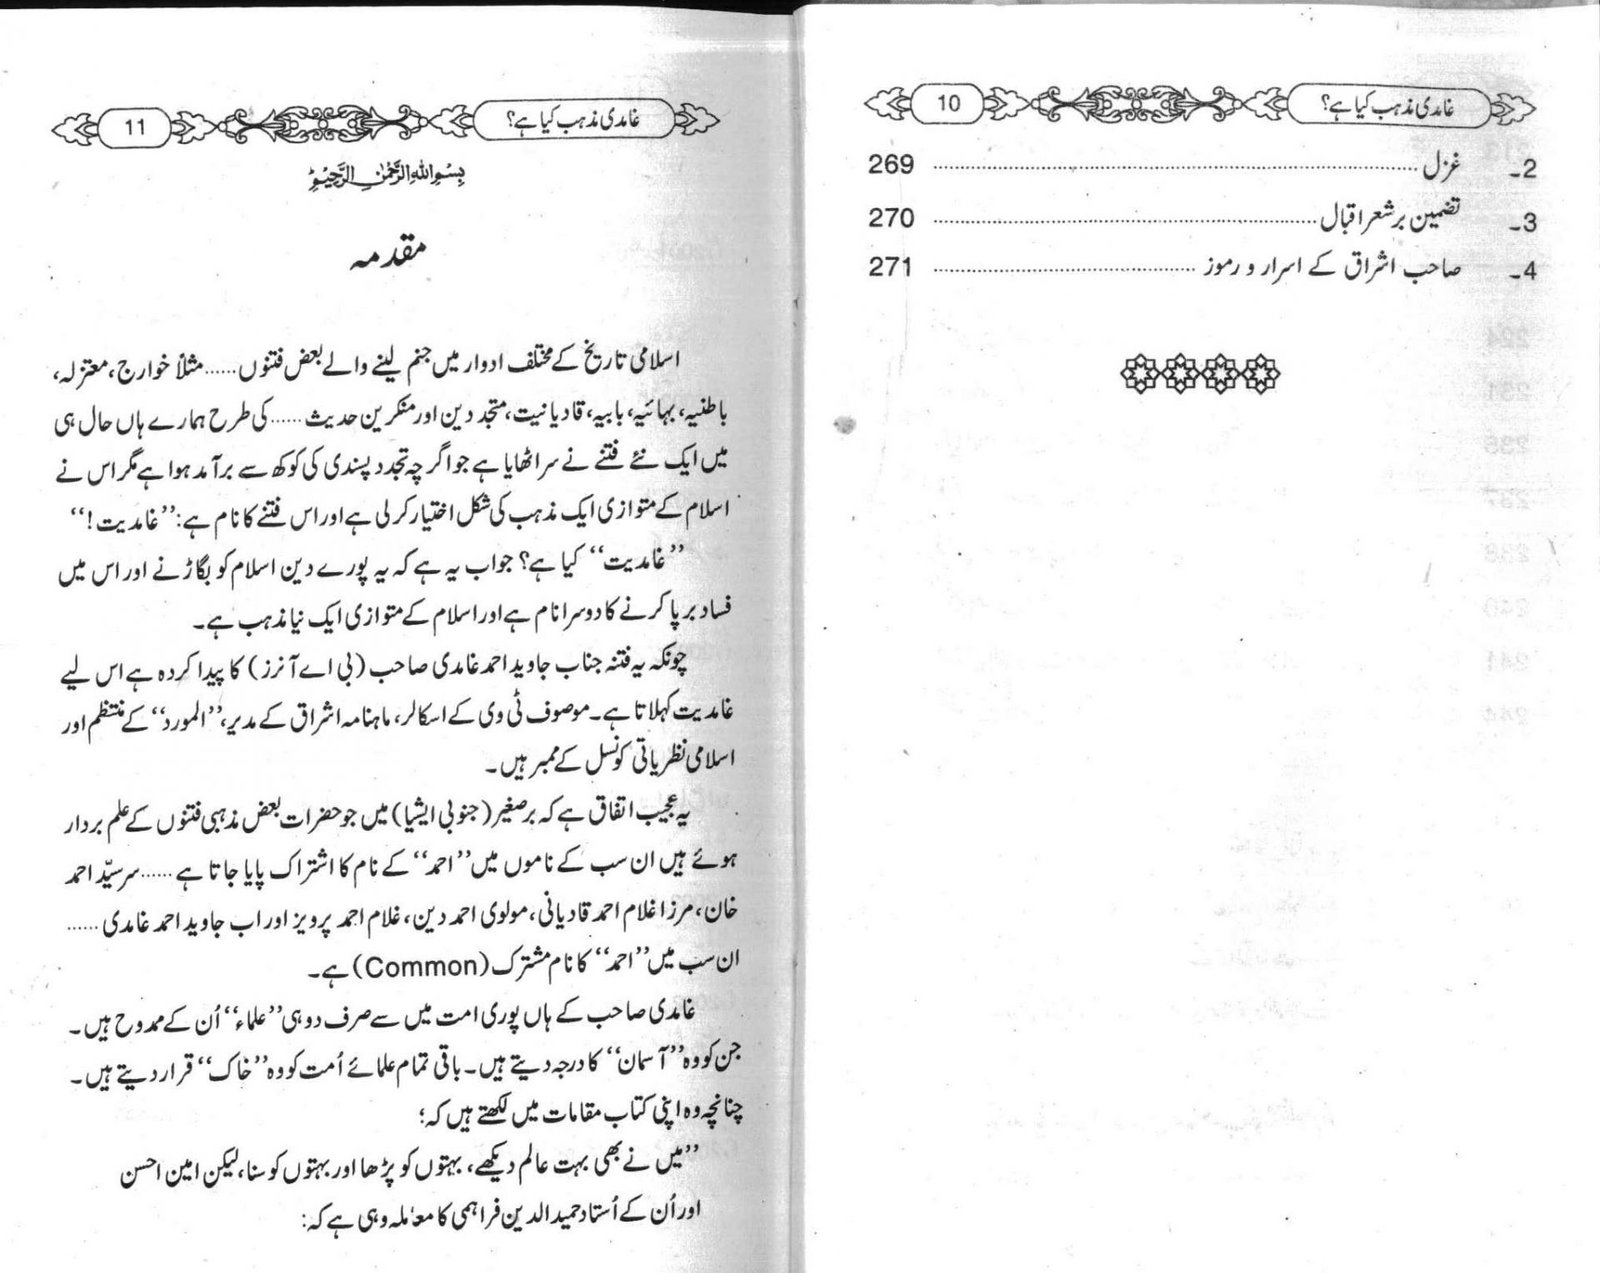 غامدی مذہب کیا ہے؟ 10
2۔ غزل ........ 269
3۔ تضمین بر شعر اقبال ........ 270
4۔ صاحب اشراق کے اسرار و رموز ........ 271
غامدی مذہب کیا ہے؟ 11
بسم اللہ الرحمٰن الرحیم
مقدمہ
اسلامی تاریخ کے مختلف ادوار میں جنم لینے والے بعض فتنوں...... مثلاً خوارج، معتزلہ،
باطنیہ، بہائیہ، بابیہ، قادیانیت، متجددین اور منکرین حدیث...... کی طرح ہمارے ہاں حال ہی
میں ایک نئے فتنے نے سر اٹھایا ہے جو اگرچہ تجدد پسندی کی کوکھ سے برآمد ہوا ہے مگر اس نے
اسلام کے متوازی ایک مذہب کی شکل اختیار کر لی ہے اور اس فتنے کا نام ہے: ’’غامدیت!‘‘
’’غامدیت‘‘ کیا ہے؟ جواب یہ ہے کہ یہ پورے دین اسلام کو بگاڑنے اور اس میں
فساد برپا کرنے کا دوسرا نام ہے اور اسلام کے متوازی ایک نیا مذہب ہے۔
چونکہ یہ فتنہ جناب جاوید احمد غامدی صاحب (بی اے آنرز) کا پیدا کردہ ہے اس لیے
غامدیت کہلاتا ہے۔ موصوف ٹی وی کے اسکالر، ماہنامہ اشراق کے مدیر، ’’المورد‘‘ کے منتظم اور
اسلامی نظریاتی کونسل کے ممبر ہیں۔
یہ عجیب اتفاق ہے کہ برصغیر (جنوبی ایشیا) میں جو حضرات بعض مذہبی فتنوں کے علم بردار
ہوئے ہیں ان سب کے ناموں میں ’’احمد‘‘ کے نام کا اشتراک پایا جاتا ہے...... سرسیّد احمد
خان، مرزا غلام احمد قادیانی، مولوی احمد دین، غلام احمد پرویز اور اب جاوید احمد غامدی ......
ان سب میں ’’احمد‘‘ کا نام مشترک (Common) ہے۔
غامدی صاحب کے ہاں پوری امت میں سے صرف دو ہی ’’علماء‘‘ اُن کے ممدوح ہیں۔
جن کو وہ ’’آسمان‘‘ کا درجہ دیتے ہیں۔ باقی تمام علمائے اُمت کو وہ ’’خاک‘‘ قرار دیتے ہیں۔
چنانچہ وہ اپنی کتاب مقامات میں لکھتے ہیں کہ:
’’میں نے بھی بہت عالم دیکھے، بہتوں کو پڑھا اور بہتوں کو سنا، لیکن امین احسن
اور اُن کے اُستاد حمید الدین فراہی کا معاملہ وہی ہے کہ: